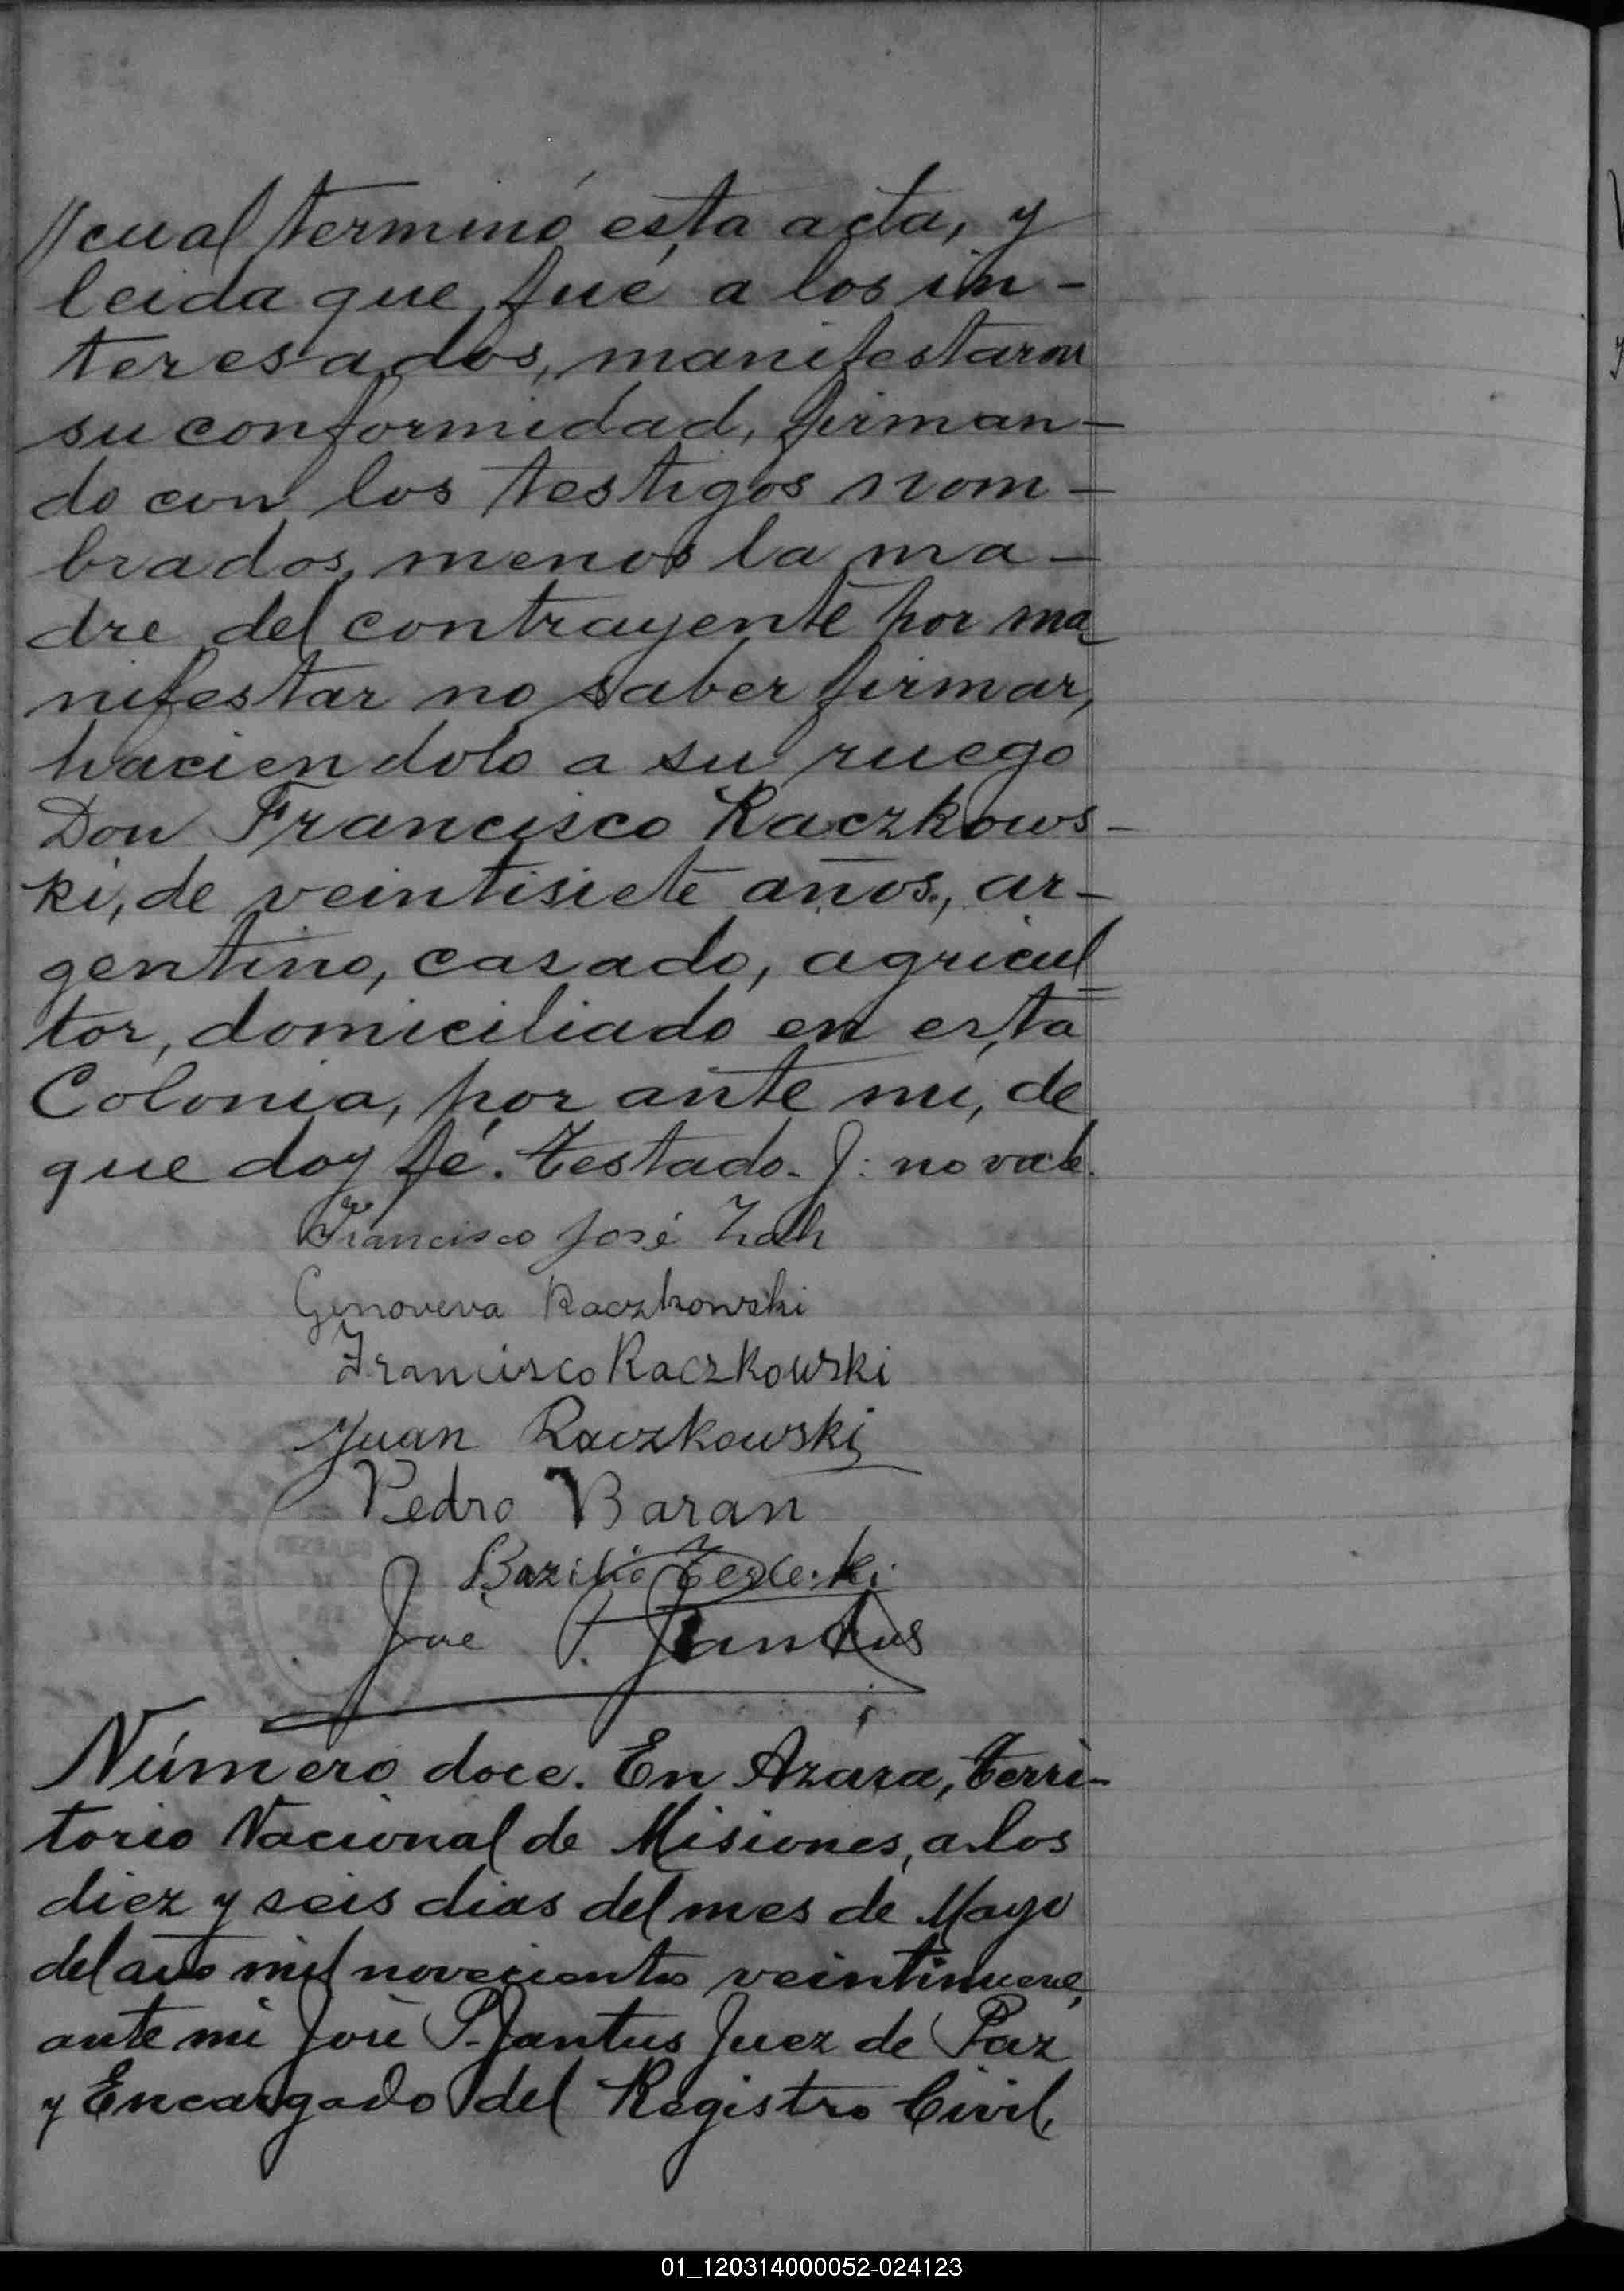 //cual terminó esta acta, y
leida que fué a los in-
teresados, manifestaron
su conformidad, firman-
do con los testigos nom-
brados, menos la ma-
dre del contrayente por ma-
nifestar no saber firmar,
haciendolo a su ruego
Don Francisco Raczkows-
ki, de veintisiete años, ar-
gentino, casado, agricul=
tor, domiciliado en esta
Colonia, por ante mi, de
que doy fé. Testado. J: no vale.
Francisco José
Genoveva Raczkowski
Francisco Raczkowski
Juan Raczkowski
Pedro Baran
José P. Jantus
Número doce. En Azara, Terri-
torio Nacional de Misiones, a los
diez y seis dias del mes de Mayo
del año mil novecientos veintinueve,
ante mi José P. Jantus Juez de Paz
y Encargado del Registro Civil,
01_120314000052-024123